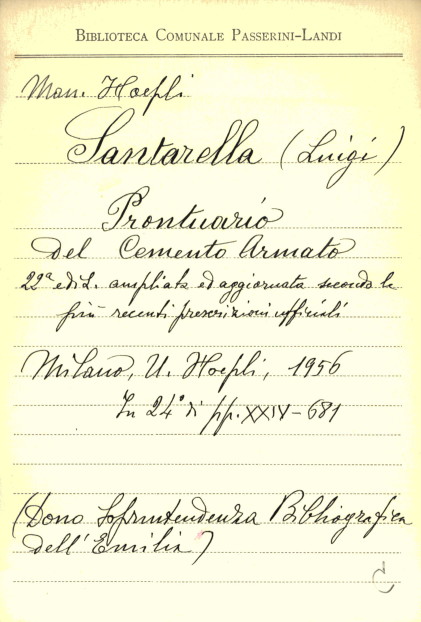 BIBLIOTECA COMUNALE PASSERINI-LANDI
Man. Hoepli
Santarella (Luigi)
Prontuario
del Cemento Armato
22ª ediz. ampliata ed aggiornata secondo le
più recenti prescrizioni ufficiali
Milano, U. Hoepli, 1956
In 24° di pp. XXIV-681
(Dono Soprintendenza Bibliografica
dell'Emilia)